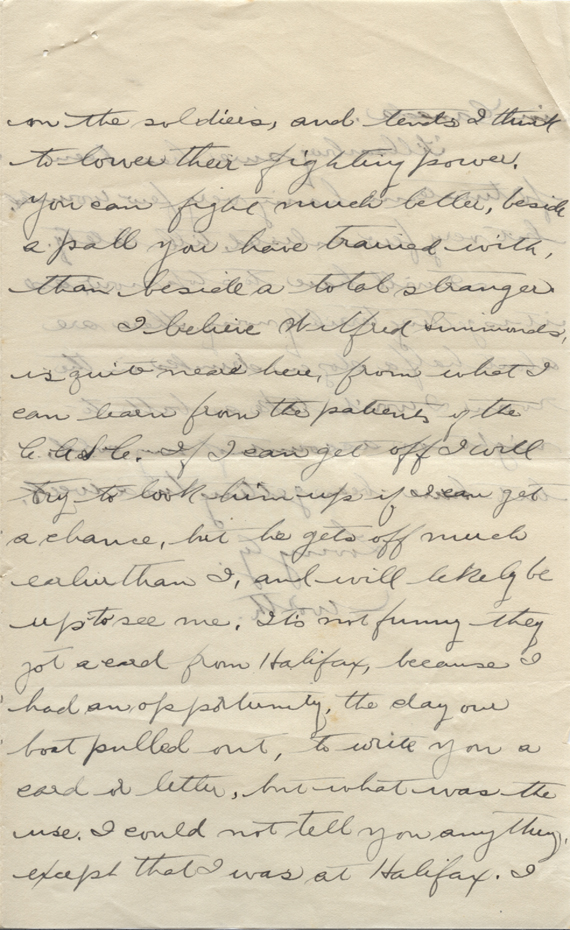 on the soldiers, and tents I think
to lower their fighting power.
You can fight much better, beside
a pall you have trained with,
than beside a total stranger.
I believe Wilfred Simmonds,
is quite near here, from what I
can learn from the patients of the
C.A.S.C. If I can get off I will
try to look him up if I can get
a chance, but he gets off much
earlier than I, and will likely be
up to see me. It's not funny they
got a card from Halifax, because I
had an opportunity, the day our
boat pulled out, to write you a
card or letter, but what was the
use. I could not tell you anything,
except that I was at Halifax. I